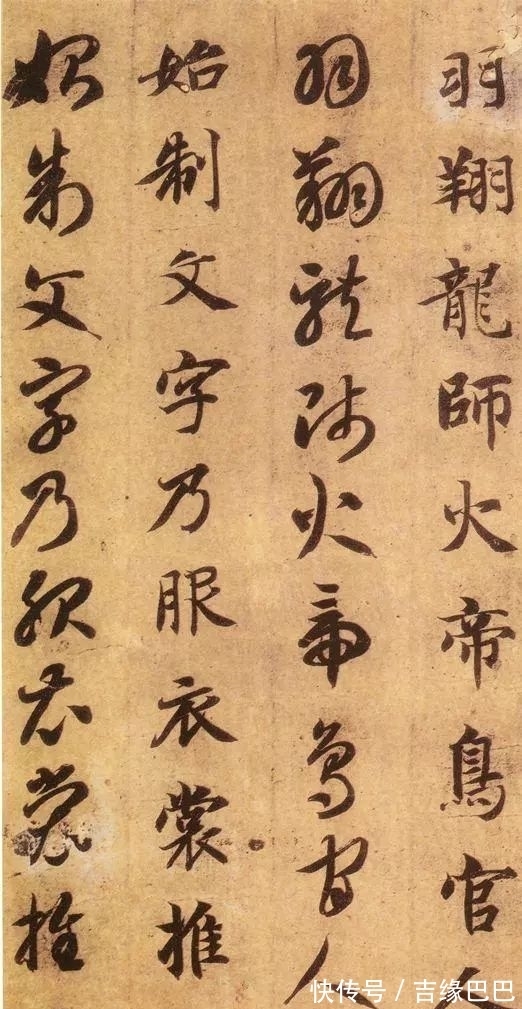 羽翔龍師火帝鳥官人
羽翔龍師火帝鳥官人
始制文字乃服衣裳推
始制文字乃服衣裳推
快传号 / 吉缘巴巴